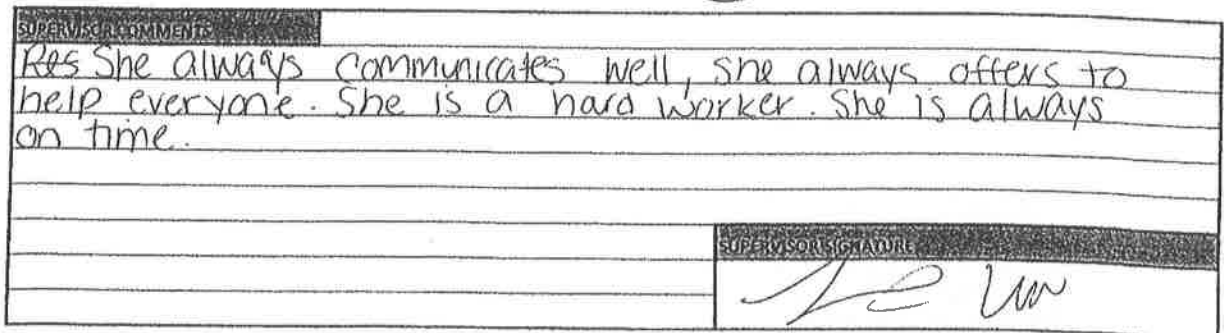 SUPERVISOR COMMENTS
Res She always communicates well, she always offers to
help everyone. She is a hard worker. She is always
on time.
SUPERVISOR SIGNATURE